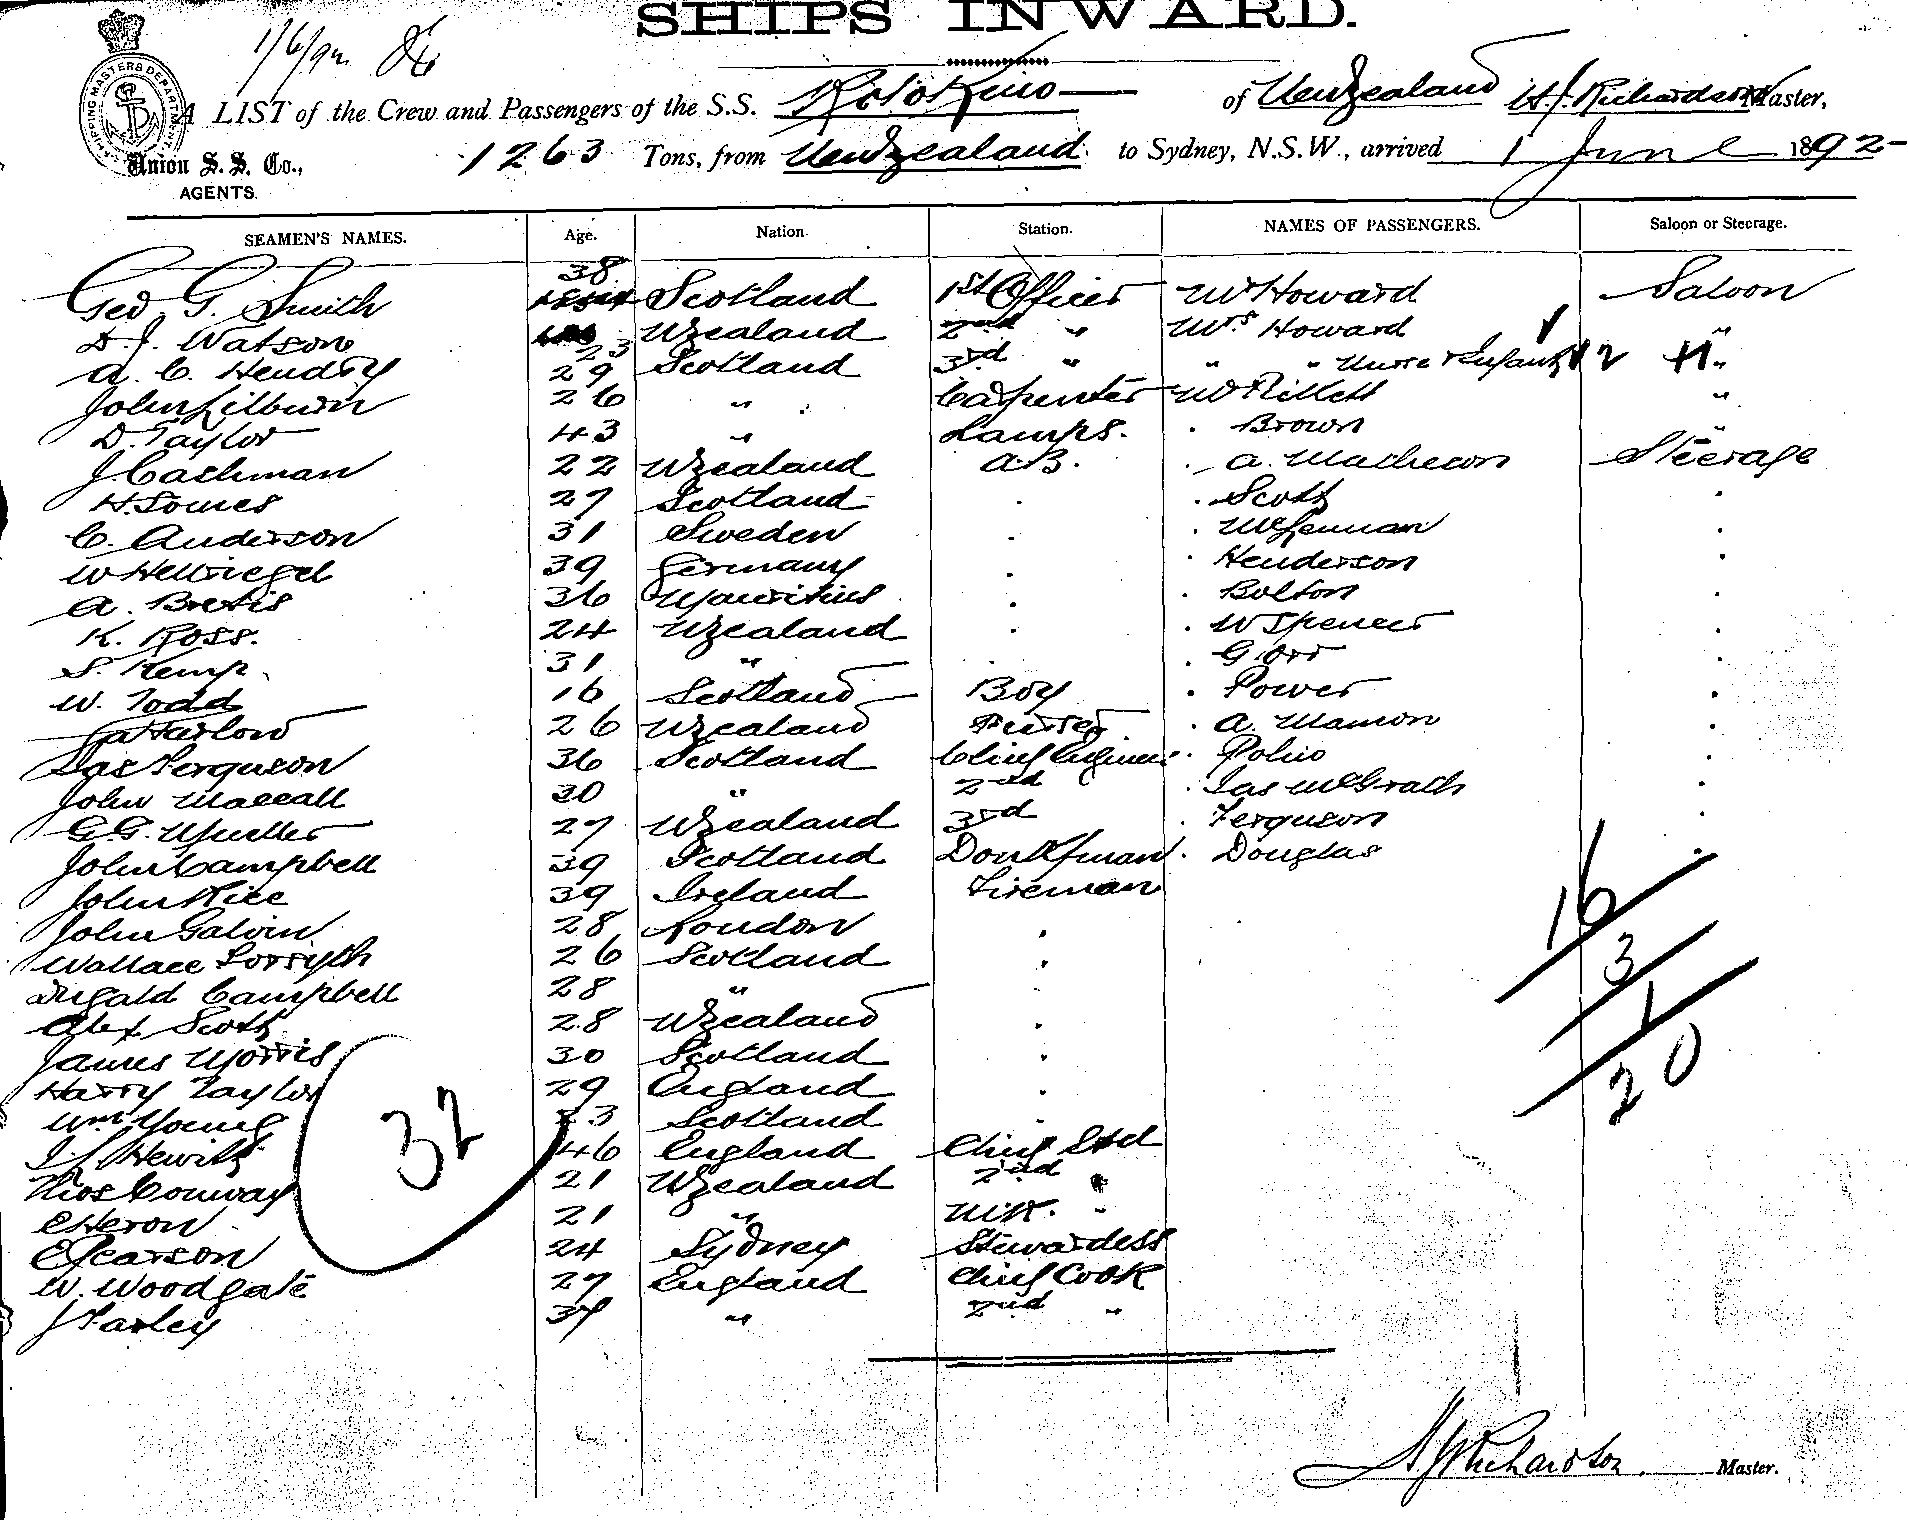 SHIPS INWARD.
1/6/92
A LIST of the Crew and Passengers of the S.S. Rotokino of New Zealand H. J. Richardson Master,
Union S. S. Co., AGENTS. 1263 Tons, from New Zealand to Sydney, N.S.W., arrived 1 June 1892
SEAMEN'S NAMES. Age. Nation Station. NAMES OF PASSENGERS. Saloon or Steerage.
Geo G. Smith 38 Scotland 1st Officer Mr Howard Saloon
D. J. Watson 23 N Zealand 2nd " Mrs Howard "
A. C. Hendry 29 Scotland 3rd " " " Nurse & Infant 2 "
John Lilburn 26 " Carpenter Mr Rillett "
D. Taylor 43 " Lamps. Brown "
J. Cashman 22 N Zealand A.B. A. Mathewson Steerage
H. Somes 27 Scotland . . Scott .
C. Anderson 31 Sweden . . McLennan .
W Hellriegel 39 Germany . . Henderson .
A. Bretis 36 Mauritius . . Bolton .
K. Ross. 24 N Zealand . . W Spencer .
S. Kemp. 31 " . . G Orr .
W. Todd 16 Scotland Boy . Power .
Harlow 26 N Zealand Purser . A. Mamon .
Jas Ferguson 36 Scotland Chief Engineer . Polio .
John Maccall 30 " 2nd . Jas McGrath .
G. G. Mueller 27 N Zealand 3rd . Ferguson .
John Campbell 39 Scotland Donkfman . Douglas .
John Rice 39 Ireland Fireman
John Galvin 28 London .
Wallace Forsyth 26 Scotland .
Dugald Campbell 28 " .
Alex Scott 28 N Zealand .
James Morris 30 Scotland .
Harry Taylor 29 England .
Wm Young 23 Scotland .
J. Hewitt 46 England Chief Std
Thos Conway 21 N Zealand 2nd "
C Heron 21 " "
E Pearson 24 Sydney Stewardess
W. Woodgate 27 England Chief Cook
J Farley 37 " 2nd "
32
16
3
1
20
H J Richardson Master.